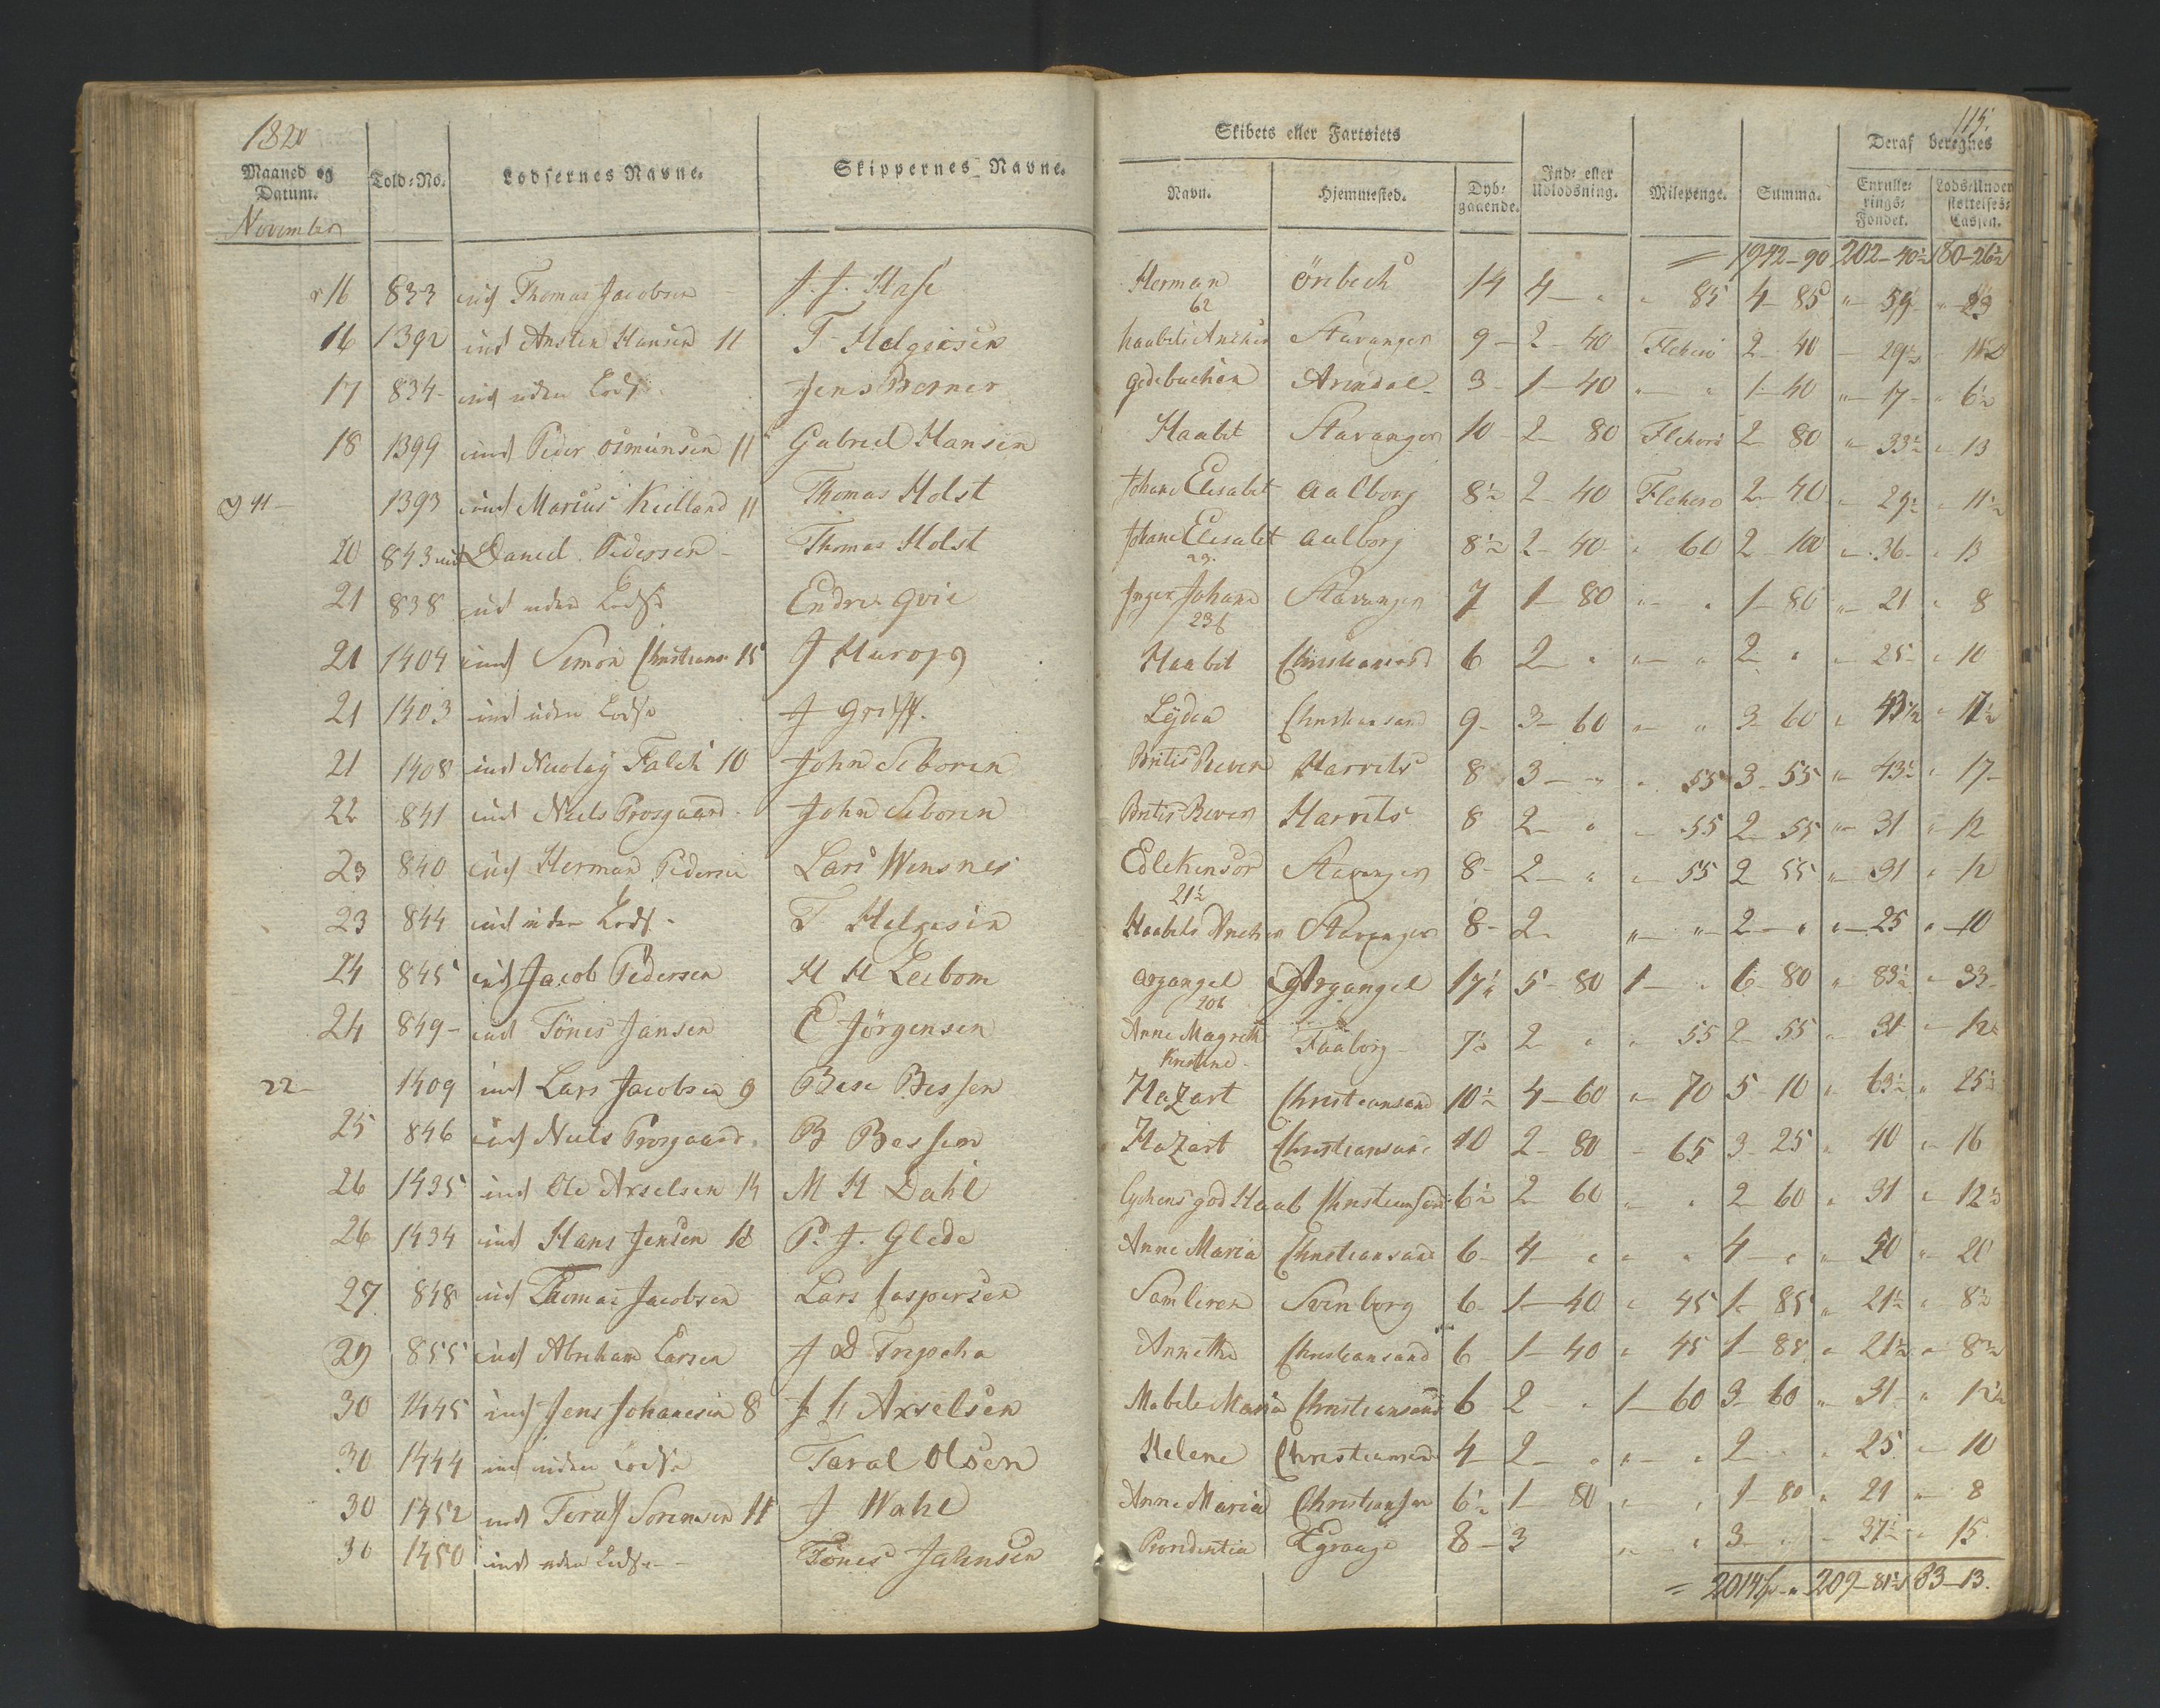 1820
115.
Maaned og Datum.
Told-No.
Lodsernes Navne.
Skippernes Navne.
Skibets eller Fartøiets
Navn.
Hjemmested.
Dybgaaende.
Ind- eller Udlodsning.
Milepenge.
Summa.
Deraf beregnes
Enrullerings-Fondet.
Lods-Understøttelses-Cassen.
November
= 1942-90 202-40½ 80-26½
16 833 ud Thomas Jacobsen J. J. Hase Herman 62 14 4 - " " 85 4 85 " 59 " 23
16 1392 ind Ansten Hansen 11 T Helgesen Haabets Ancker Stavanger 9 2 40 Flekerö 2 40 29½ 11½
17 834 ud uden Lods Jens Berner Gedebucken Arendal 3 1 40 " " 1 40 " 17 " 6½
18 1399 ind Peder Osmunsen 11 Gabriel Hansen Haabet Stavanger 10 2 80 Flekerö 2 80 " 33½ " 13
1393 ind Marius Kielland 11 Thomas Holst Johane Elisabet Aalborg 8½ 2 40 Flekerö 2 40 29½ " 11½
20 843 ud Daniel Pedersen Thomas Holst Johane Elisabet Aalborg 8½ 2 40 " 60 2 100 " 36 " 13
21 838 ud uden Lods Endre Qvie Inger Johane Stavanger 7 1 80 " " 1 80 " 21 " 8
21 1404 ind Simon Christians 15 J Haabet Christiansand 6 2 " " " 2 " " 25 " 10
21 1403 ind uden Lods J Greiff. Lydea Christiansand 9 3 60 " " 3 60 " 43½ " 17½
21 1408 ind Nicolay Falck 10 John Seboren Harvits 8 3 " " 55 3 55 " 43½ " 17
22 841 ud Niels Prosgaard John Seboren Harvits 8 2 " " 55 2 55 " 31 " 12
23 840 ud Herman Pedersen Lars Wensnes Stavanger 8 2 " " 55 2 55 " 31 " 12
21½
23 844 ud uden Lods T Helgesen Haabets Ancker Stavanger 8 2 " " 2 " " 25 " 10
24 845 ud Jacob Pedersen H H Leebom Argangel Argangel 17½ 5 80 1 " 6 80 " 83½ " 33
24 849 ud Tönes Jansen E Jörgensen Anne Magreth Kristine Faaborg 7½ 2 " " 55 2 55 " 31 " 12
22 1409 ind Lars Jacobsen 9 Bese Bessen Mazart Christiansand 10½ 4 60 " 70 5 10 " 63½ " 25½
25 846 ud Niels Prosgaard B Bessen Mazart Christiansand 10 2 80 65 3 25 " 40 " 16
26 1435 ind Ole Axselsen 14 M H Dahl Lykens god Haab Christiansand 6½ 2 60 " " 2 60 " 31 " 12½
26 1434 ind Hans Jensen P. J. Glede Anne Maria Christiansand 6 4 " " " 4 " " 50 " 20
27 848 ud Thomas Jacobsen Lars Caspersen Samleren Svenborg 6 1 40 " 45 1 85 " 21½ " 8½
29 855 ud Abraham Larsen J D Annethe Christiansand 6 1 40 " 45 1 85 " 21½ " 8½
30 1445 ind Jens Johanesen 8 Axselsen Mabele Maria Christiansand 6 2 " 1 60 3 60 " 31 " 12½
30 1444 ind uden Lods Taral Olsen Helene Christiansand 4 2 " " " 2 " 25 10
30 1452 ind Sorensen 11 J Wahl Anne Maria Christiansan 6½ 1 80 " " 1 80 " 21 " 8
30 1450 ind uden Lods Tönes Jahnsen Providentia 8 3 " " 3 " 37½ " 15
= 2014 - " 209-81½ 83-13.